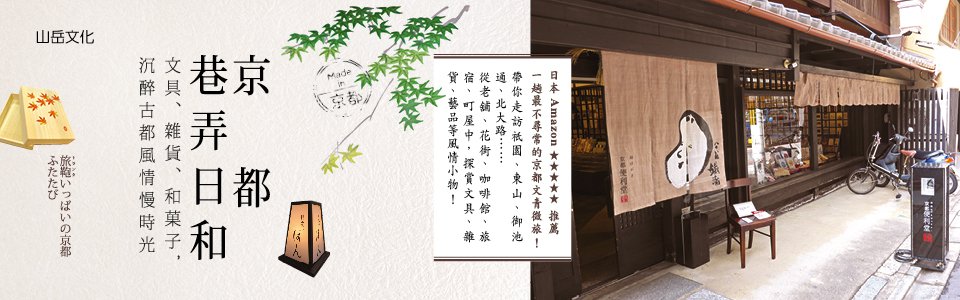 山岳文化
京都
巷弄日和
文具、雜貨、和菓子,
沉醉古都風情慢時光
旅鞄いっぱいの京都
ふたたび
Made
in
京都
日本 Amazon ★★★★★ 推薦
一趟最不尋常的京都文青微旅!
帶你走訪祇園、東山、御池
通、北大路……
從老舖、花街、咖啡館、旅
宿、町屋中,探賞文具、雜
貨、藝品等風情小物!
京都便利堂
京都便利堂